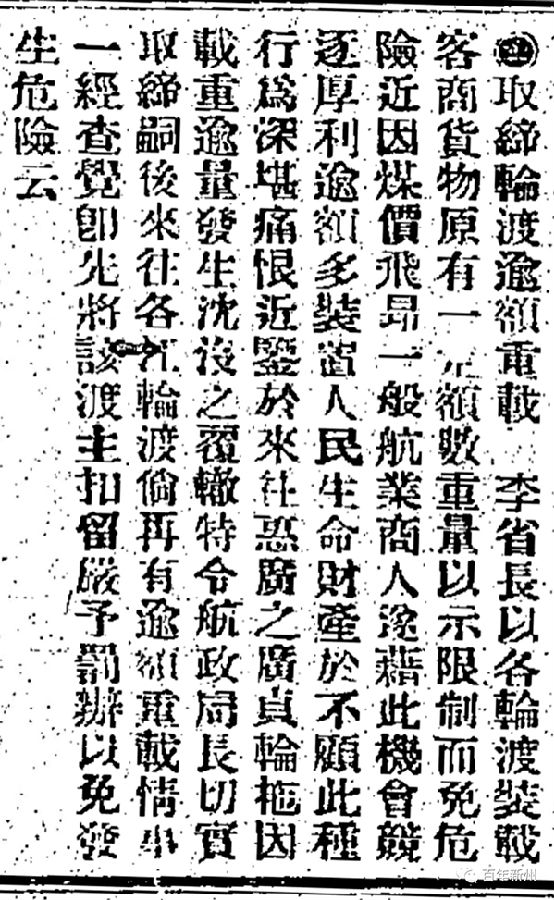 取締輪渡逾額重載　李省長以各輪渡裝載
客商貨物原有一定額數重量以示限制而免危
險近因煤價飛昂一般航業商人遂藉此機會競
逐厚利逾額多裝置人民生命財產於不顧此種
行為深堪痛恨近鑒於來往恩廣之廣貞輪拖因
載重逾量發生沈沒之覆轍特令航政局長切實
取締嗣後來往各江輪渡倘再有逾額重載情事
一經查覺卽先將該渡主扣留嚴予罰辦以免發
生危險云
百年新州